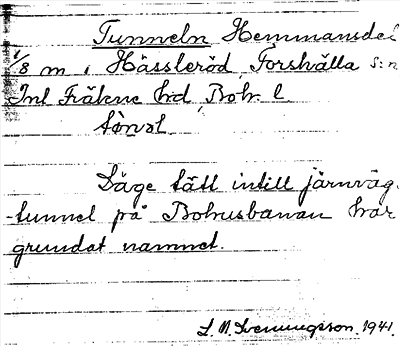 Tunneln Hemmansdel
1/8 m i Hässleröd, Forshälla s:n
Inl Fräkne hrd, Boh. l.
tönəl
Läge tätt intill järnväg-
-tunnel på Bohusbanan har
grundat namnet.
L N. Svenungsson. 1941.